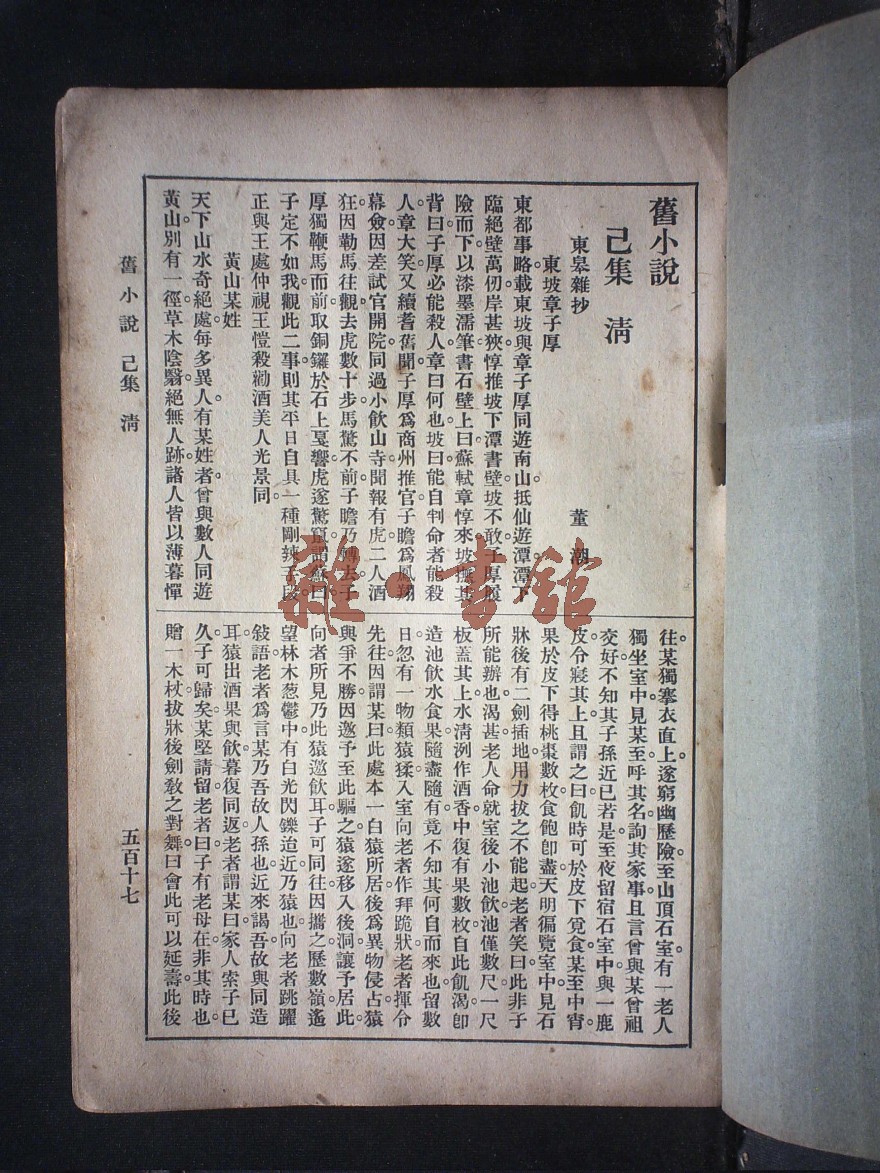 舊小說
己集　淸
東皋雜抄　董潮
東坡章子厚
東都事略載東坡與章子厚同遊南山抵仙遊潭潭下
臨絕壁萬仞岸甚狹惇推坡下潭書壁坡不敢子厚履
險而下以漆墨濡筆書石壁上曰蘇軾章惇來坡撫其
背曰子厚必能殺人章曰何也坡曰能自判命者能殺
人章大笑又續耆舊聞子厚爲商州推官子瞻爲鳳翔
幕僉因差試官開院同過小飲山寺聞報有虎二人酒
狂因勒馬往觀去虎數十步馬驚不前子瞻乃轉去子
厚獨鞭馬而前取銅鑼於石上戛響虎遂驚竄謂蘇曰
子定不如我觀此二事則其平日自具一種剛辣手段
正與王處仲視王愷殺勸酒美人光景同
黃山某姓
天下山水奇絕處每多異人有某姓者曾與數人同遊
黃山別有一徑草木陰翳絕無人跡諸人皆以薄暮憚
往某獨搴衣直上遂窮幽歷險至山頂石室有一老人
獨坐室中見某至呼其名詢其家事且言曾與某曾祖
交好不知其子孫近已若是至夜留宿石室中與一鹿
皮令寢其上且謂之曰飢時可於皮下覓食某至中宵
果於皮下得桃棗數枚食飽卽盡天明徧覽室中見石
牀後有二劍插地用力拔之不能起老者笑曰此非子
所能辦也渴甚老人命就室後小池飲池僅數尺一尺
板蓋其上水淸冽作酒香中復有果數枚自此飢渴卽
造池飲水食果隨盡隨有竟不知其何自而來也留數
日忽有一物類猿猱入室向老者作拜跪狀老者揮令
先往因謂某曰此處本一白猿所居後爲異物侵占猿
與爭不勝因邀予至此驅之猿遂移入後洞讓予居此
向者所見乃此猿邀飲耳子可同往因攜之歷數嶺遙
望林木葱鬱中有白光閃鑠迨近乃猿也向老者跳躍
敍語老者爲言某乃吾故人孫也近來謁吾故與同造
耳猿出酒果與飲暮復同返老者謂某曰家人索子已
久子可歸矣某堅請留老者曰子有老母在非其時也
贈一木杖拔牀後劍敎之對舞曰會此可以延壽此後
舊小說　己集　淸
五百十七
雜·書館